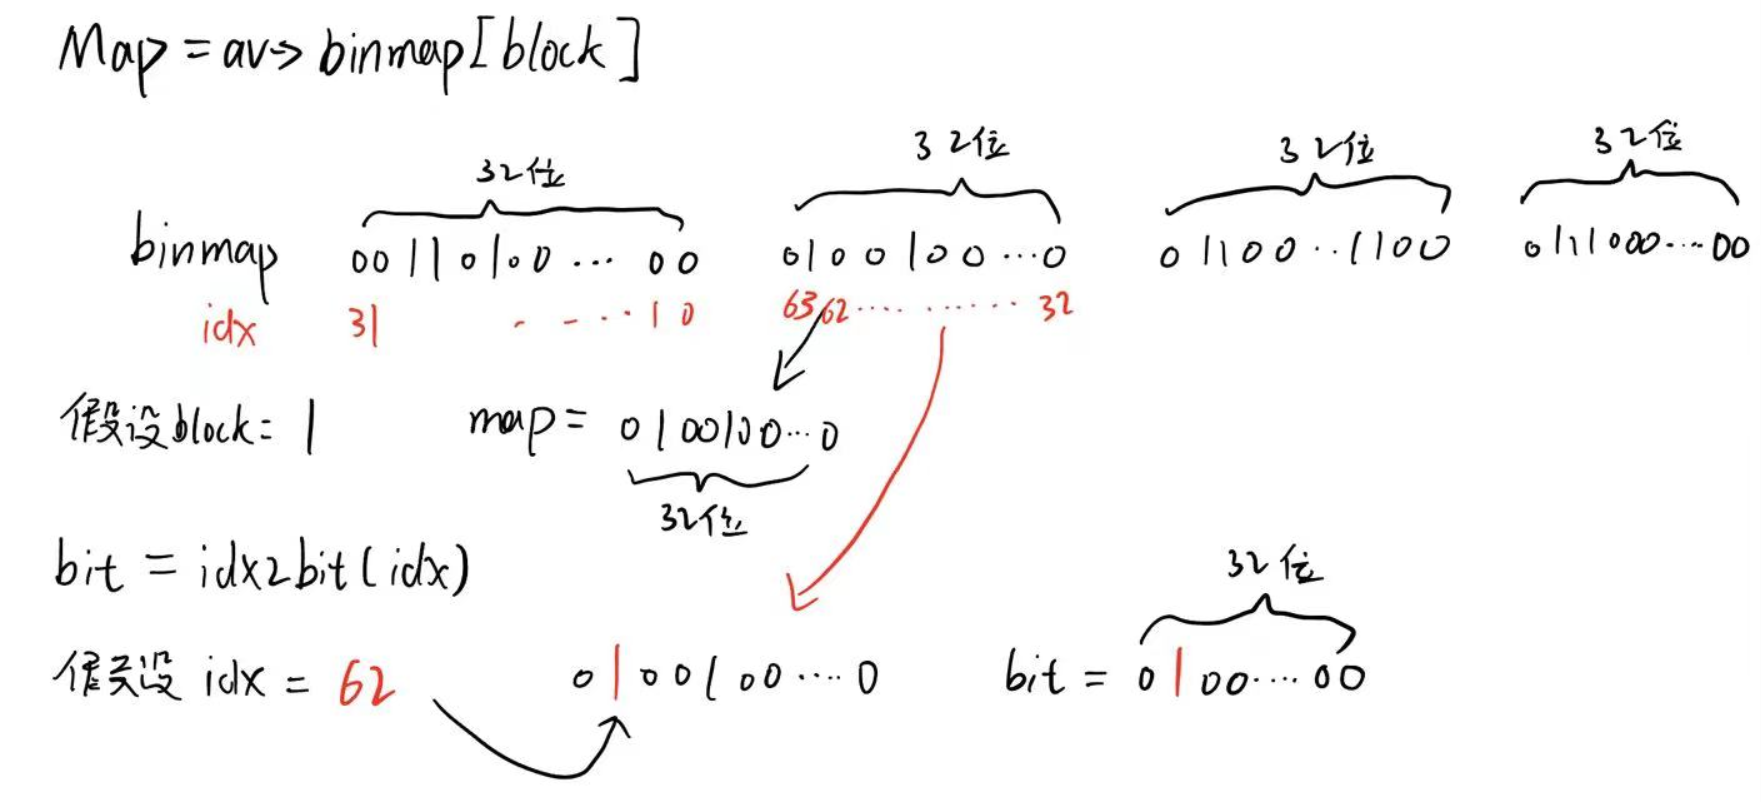 Map = av-> binmap[block]
32位 32位 32位 32位
binmap 00110100 ... 00 0100100...0 01100..1100 0111000....00
idx 31 - - ...10 6362.... ...... 32
假设block= 1 map= 0100100...0
32位
bit = idx2bit(idx)
32位
假设 idx = 62 0100100....0 bit = 0100....00